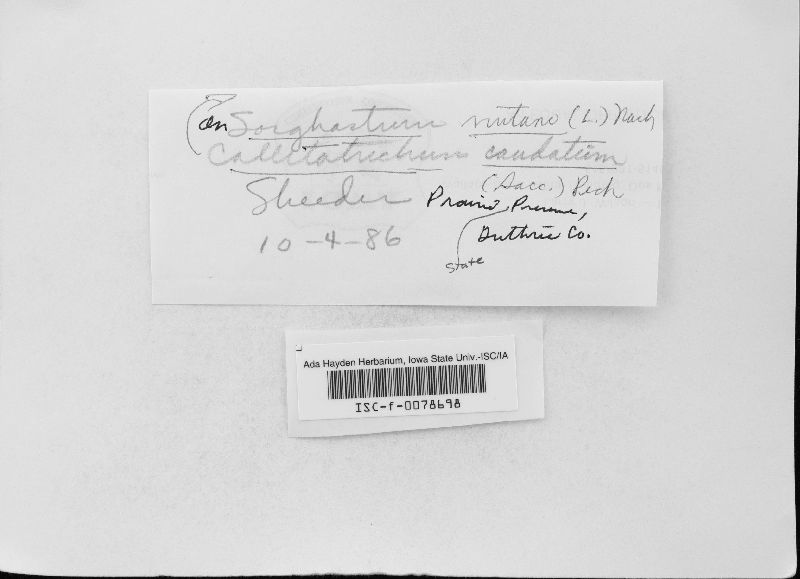 on Sorghastrum nutans (L.) Nash
Colletotrichum caudatum
(Sacc.) Peck
Sheeder Prairie Preserve,
10-4-86 Guthrie Co.
State
Ada Hayden Herbarium, Iowa State Univ.-ISC/IA
ISC-f-0078698